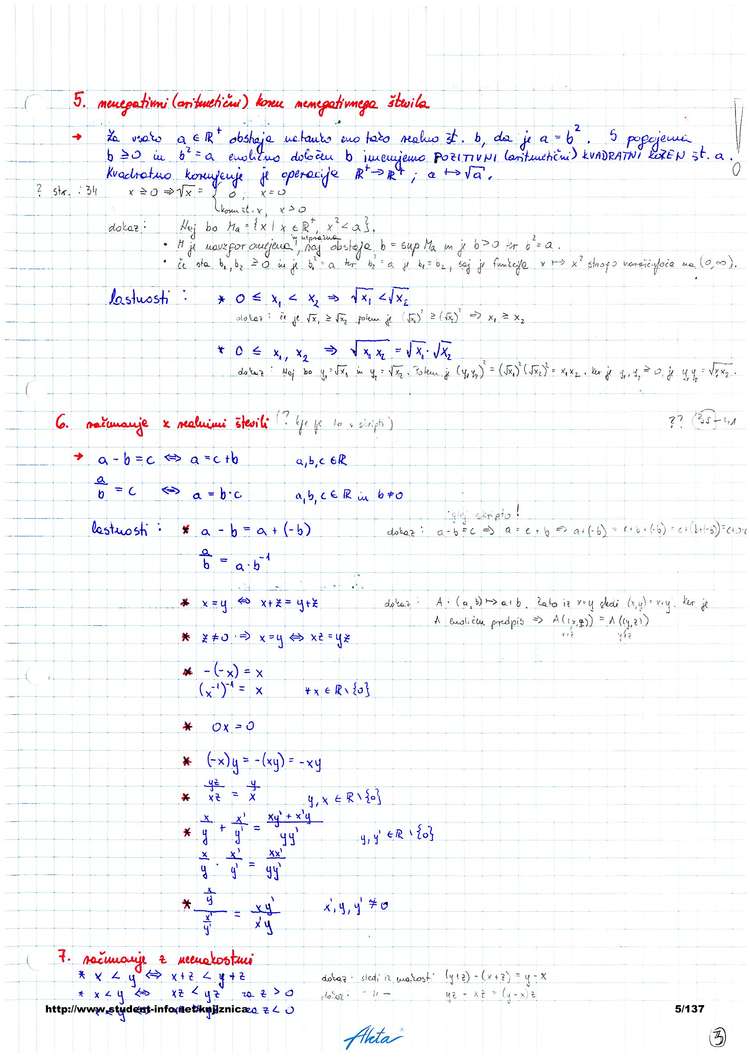 5. nenegativni (aritmetični) koren nenegativnega števila
→ Za vsako a ∈ ℝ⁺ obstaja natanko eno tako realno št. b, da je a = b². S pogojema
b ≥ 0 in b² = a enolično določen b imenujemo POZITIVNI (aritmetični) KVADRATNI KOREN št. a.
Kvadratno korenjenje je operacija ℝ⁺ → ℝ⁺ ; a ↦ √a.
? str. : 34 x ≥ 0 ⇒ √x = { 0, x = 0
koren št. x, x > 0
dokaz: Naj bo Ma = {x | x ∈ ℝ⁺, x² < a}.
• M je navzgor omejena, in neprazna, zaj obstaja b = sup Ma in je b > 0 ter b² = a.
• če sta b₁, b₂ ≥ 0 in je b₁² = a ter b₂² = a je b₁ = b₂, saj je funkcija x ↦ x² strogo naraščajoča na (0, ∞).
lastnosti : * 0 ≤ x₁ < x₂ ⇒ √x₁ < √x₂
dokaz: če je √x₁ ≥ √x₂ potem je (√x₁)² ≥ (√x₂)² ⇒ x₁ ≥ x₂
* 0 ≤ x₁, x₂ ⇒ √x₁x₂ = √x₁ · √x₂
dokaz: Naj bo y₁ = √x₁ in y₂ = √x₂. Potem je (y₁y₂)² = (√x₁)²(√x₂)² = x₁x₂. Ker je y₁, y₂ ≥ 0, je y₁y₂ = √x₁x₂.
6. računanje z realnimi števili (? kje je to v skripti) ?? 35
→ a - b = c ⇔ a = c + b a, b, c ∈ ℝ
a/b = c ⇔ a = b·c a, b, c ∈ ℝ in b ≠ 0
glej skripto!
lastnosti : * a - b = a + (-b) dokaz : a - b = c ⇒ a = c + b ⇒ a + (-b) = c + b + (-b) = c + (b + (-b)) = c + 0 = c
a/b = a·b⁻¹
* x = y ⇔ x + z = y + z dokaz : A : (a, b) ↦ a + b. Zato iz x = y sledi (x, y) = x + y. Ker je
A enoličen predpis ⇒ A((x, z)) = A((y, z))
x+z y+z
* z ≠ 0 ⇒ x = y ⇔ xz = yz
* -(-x) = x
(x⁻¹)⁻¹ = x ∀x ∈ ℝ \ {0}
* 0x = 0
* (-x)y = -(xy) = -xy
* yz/xz = y/x y, x ∈ ℝ \ {0}
* x/y + x'/y' = (xy' + x'y)/yy' y, y' ∈ ℝ \ {0}
x/y · x'/y' = xx'/yy'
* (x/y)/(x'/y') = xy'/x'y x', y, y' ≠ 0
7. računanje z neenakostmi
* x < y ⇔ x + z < y + z dokaz : sledi iz enakosti (y+z) - (x+z) = y - x
* x < y ⇔ xz < yz za z > 0 dokaz : - || - yz - xz = (y - x)z
http://www.student-info.net/knjiznica za z < 0 5/137
Aleta
3